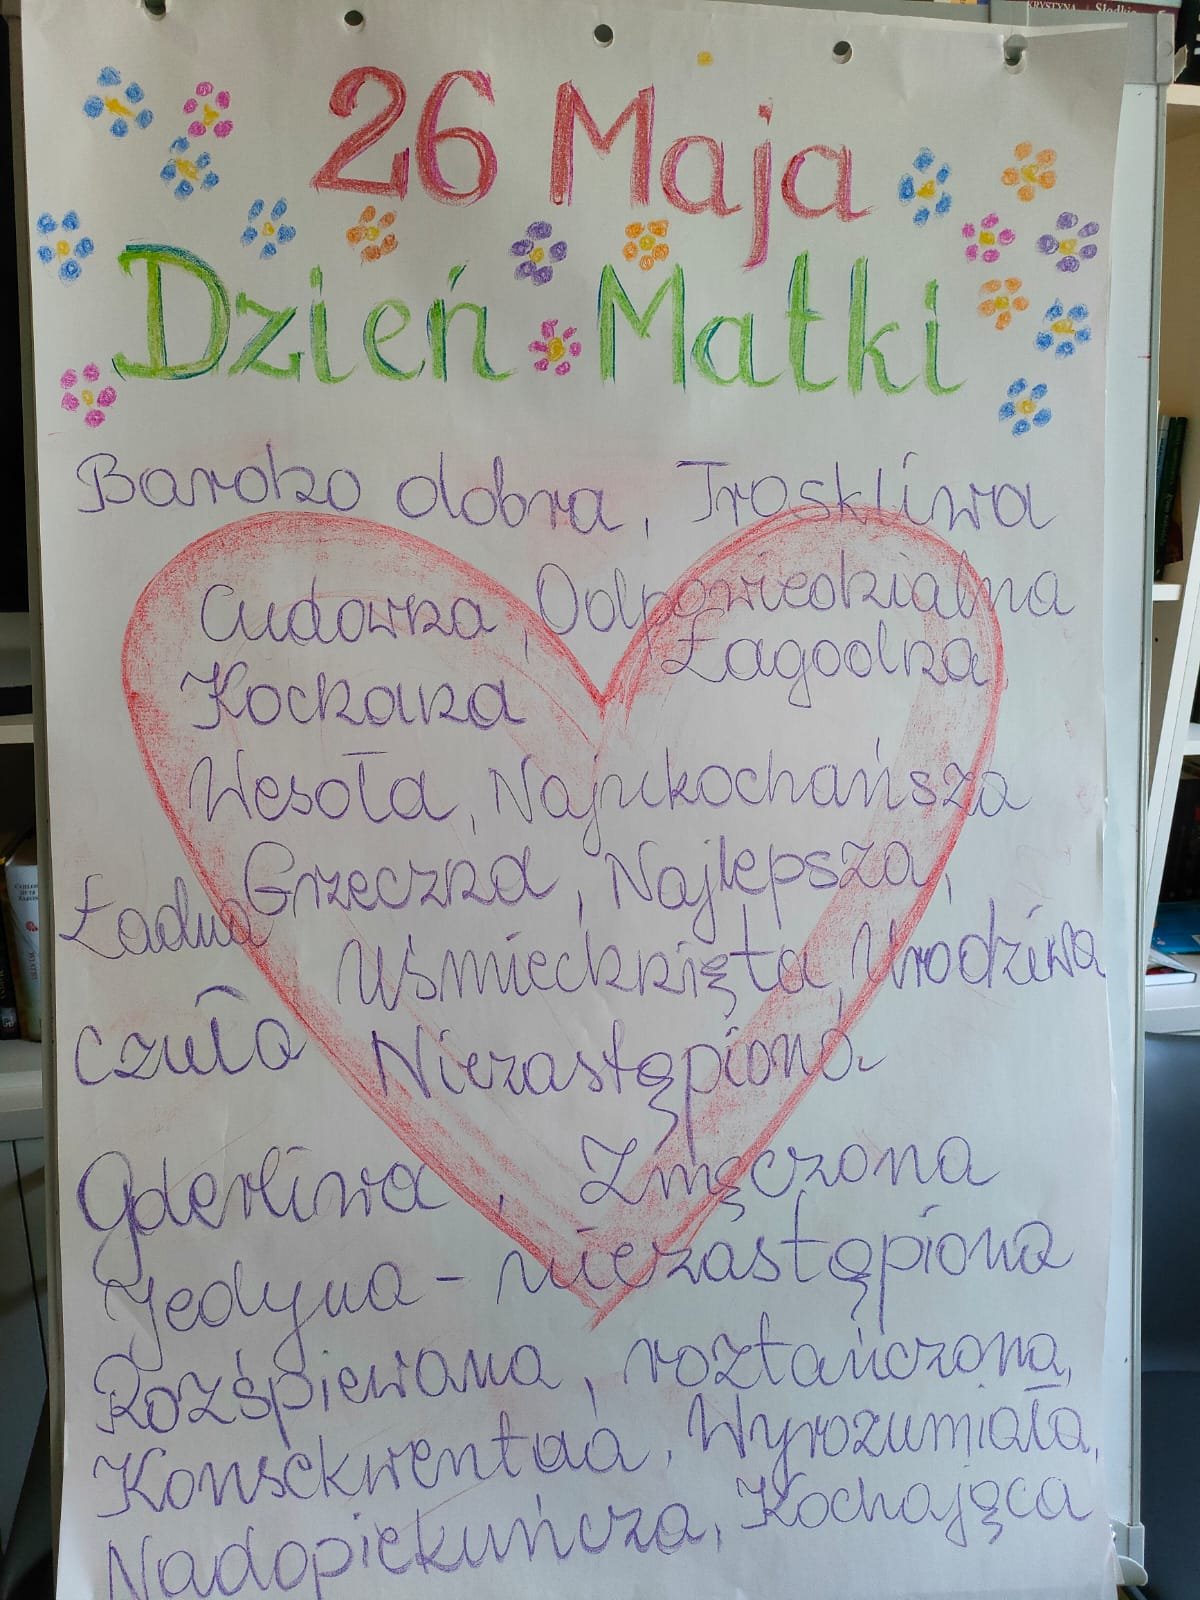 KRYSTYNA Słodkie
26 Maja
Dzień Matki
Bardzo dobra, Troskliwa
Cudowna, Odpowiedzialna
Kochana Łagodna
Wesoła, Najukochańsza
Grzeczna, Najlepsza,
Ładna Uśmiechnięta, Urodziwa
Czuła Niezastąpiona
Gderliwa, Zmęczona
Jedyna - niezastąpiona
Rozśpiewana, roztańczona,
Konsekwentna, Wyrozumiała,
Nadopiekuńcza, Kochająca